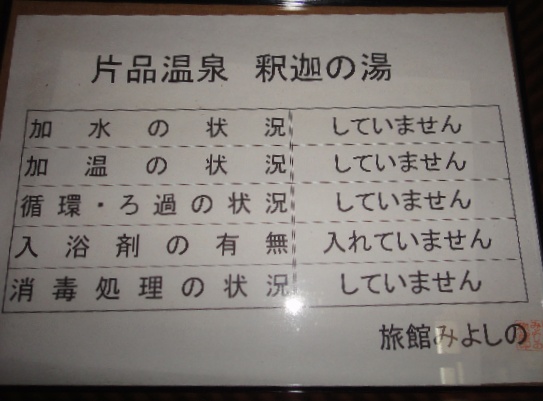 片品温泉 釈迦の湯
加水の状況 していません
加温の状況 していません
循環・ろ過の状況 していません
入浴剤の有無 入れていません
消毒処理の状況 していません
旅館みよしの